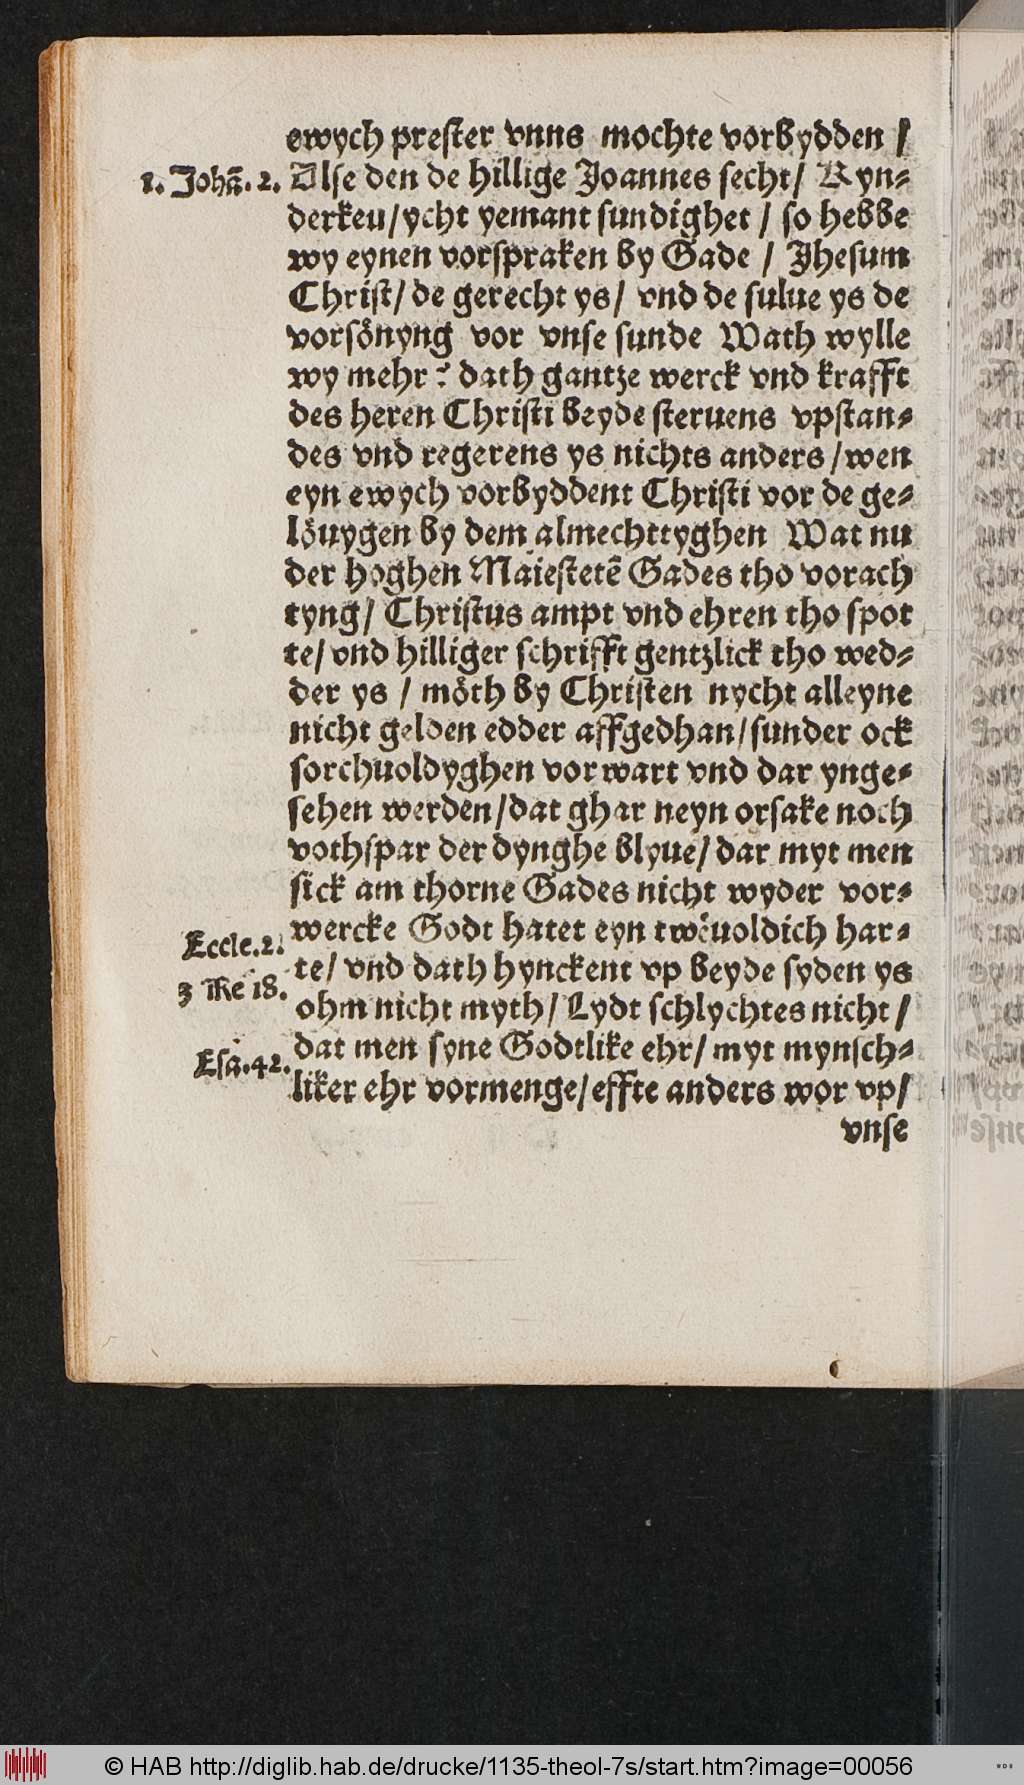 ewych prester vnns mochte vorbydden /
1. Johā. 2. Alse den de hillige Joannes secht/ Kyn-
derkeu/ycht yemant sundighet / so hebbe
wy eynen vorspraken by Gade / Jhesum
Christ/ de gerecht ys/ vnd de sulue ys de
vorsönyng vor vnse sunde Wath wylle
wy mehr? dath gantze werck vnd krafft
des heren Christi beyde steruens vpstan-
des vnd regerens ys nichts anders /wen
eyn ewych vorbyddent Christi vor de ge-
löuygen by dem almechttyghen Wat nu
der hoghen Maiestetē Gades tho vorach
tyng/ Christus ampt vnd ehren tho spot
te/ vnd hilliger schrifft gentzlick tho wed-
der ys / möth by Christen nycht alleyne
nicht gelden edder affgedhan/sunder ock
sorchuoldyghen vorwart vnd dar ynge-
sehen werden/dat ghar neyn orsake noch
vothspar der dynghe blyue/ dar myt men
sick am thorne Gades nicht wyder vor-
Eccle.2. wercke Godt hatet eyn twëuoldich har-
te/ vnd dath hynckent vp beyde syden ys
3 Re 18. ohm nicht myth/ Lydt schlychtes nicht /
dat men syne Godtlike ehr/ myt mynsch-
Esā.42. liker ehr vormenge/effte anders wor vp/
vnse
© HAB http://diglib.hab.de/drucke/1135-theol-7s/start.htm?image=00056